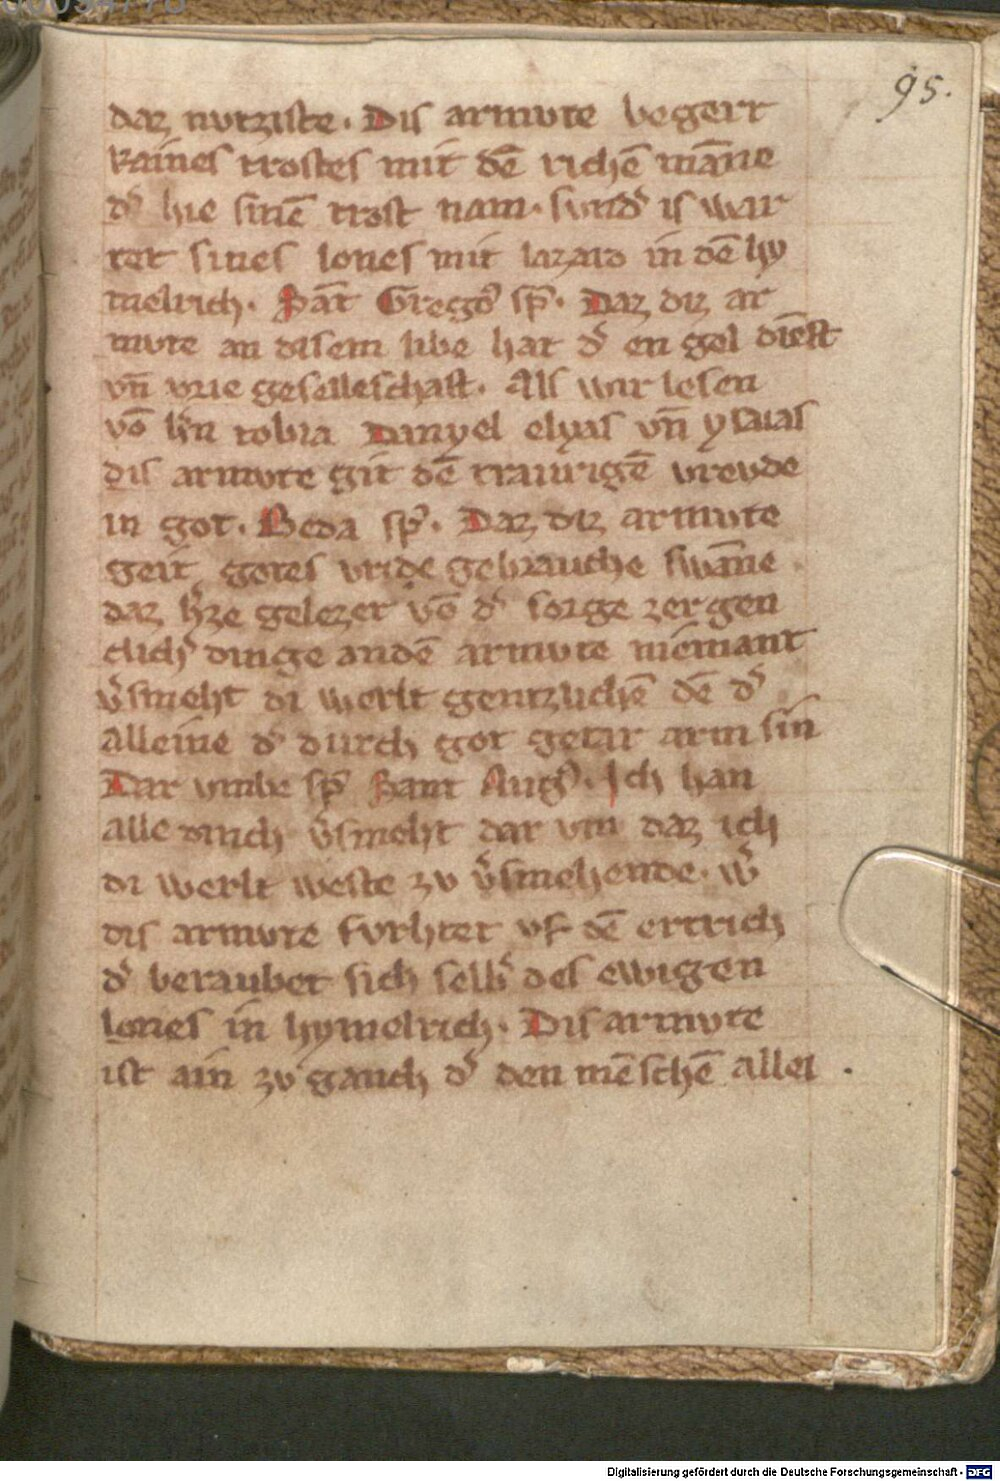 95.
daz nvtziste. Dis armvte begert
kaines trostes mit dē richē māne
d᾽ hie sinē trost nam. svnd᾽ is war
tet sines lones mit lazaro in dē hy
melrich. Sāt Gregō᾽ sp̄. Daz diz ar
mvte an disem libe hat d᾽ en gel diēst
vn̄ vrie geselleschaft. Als wir lesen
vō h᾽rn tobia Danyel elyas vn̄ ysaias
dis armvte git dē traurigē vrevde
in got. Beda sp᾽. Daz diz armvte
geit gotes vride gebrauche swāne
daz h᾽ze gelezet vō d᾽ sorge zergen
clich᾽ dinge andē armvte niemant
v᾽smeht di werlt gentzlichē dē d᾽
alleine d᾽ durch got getar arm sin
Dar vmbe sp᾽ Sant Aug᾽. Ich han
alle dinch v᾽smeht dar vm daz ich
di werlt weste zv v᾽smehende. w᾽
dis armvte fvrhtet vf dē ertrich
d᾽ beraubet sich selb᾽ des ewigen
lones in hymelrich. Dis armvte
ist ain zv ganch d᾽ den mēschē allei .
Digitalisierung gefördert durch die Deutsche Forschungsgemeinschaft - DFG